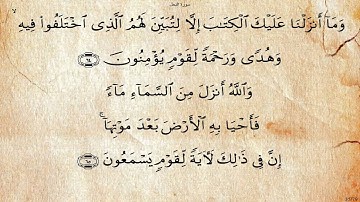 سورة النحل
وَمَآ أَنزَلْنَا عَلَيْكَ ٱلْكِتَـٰبَ إِلَّا لِتُبَيِّنَ لَهُمُ ٱلَّذِى ٱخْتَلَفُوا۟ فِيهِ
وَهُدًى وَرَحْمَةً لِّقَوْمٍ يُؤْمِنُونَ ٦٤
وَٱللَّهُ أَنزَلَ مِنَ ٱلسَّمَآءِ مَآءً
فَأَحْيَا بِهِ ٱلْأَرْضَ بَعْدَ مَوْتِهَآ ۚ
إِنَّ فِى ذَٰلِكَ لَـَٔايَةً لِّقَوْمٍ يَسْمَعُونَ ٦٥